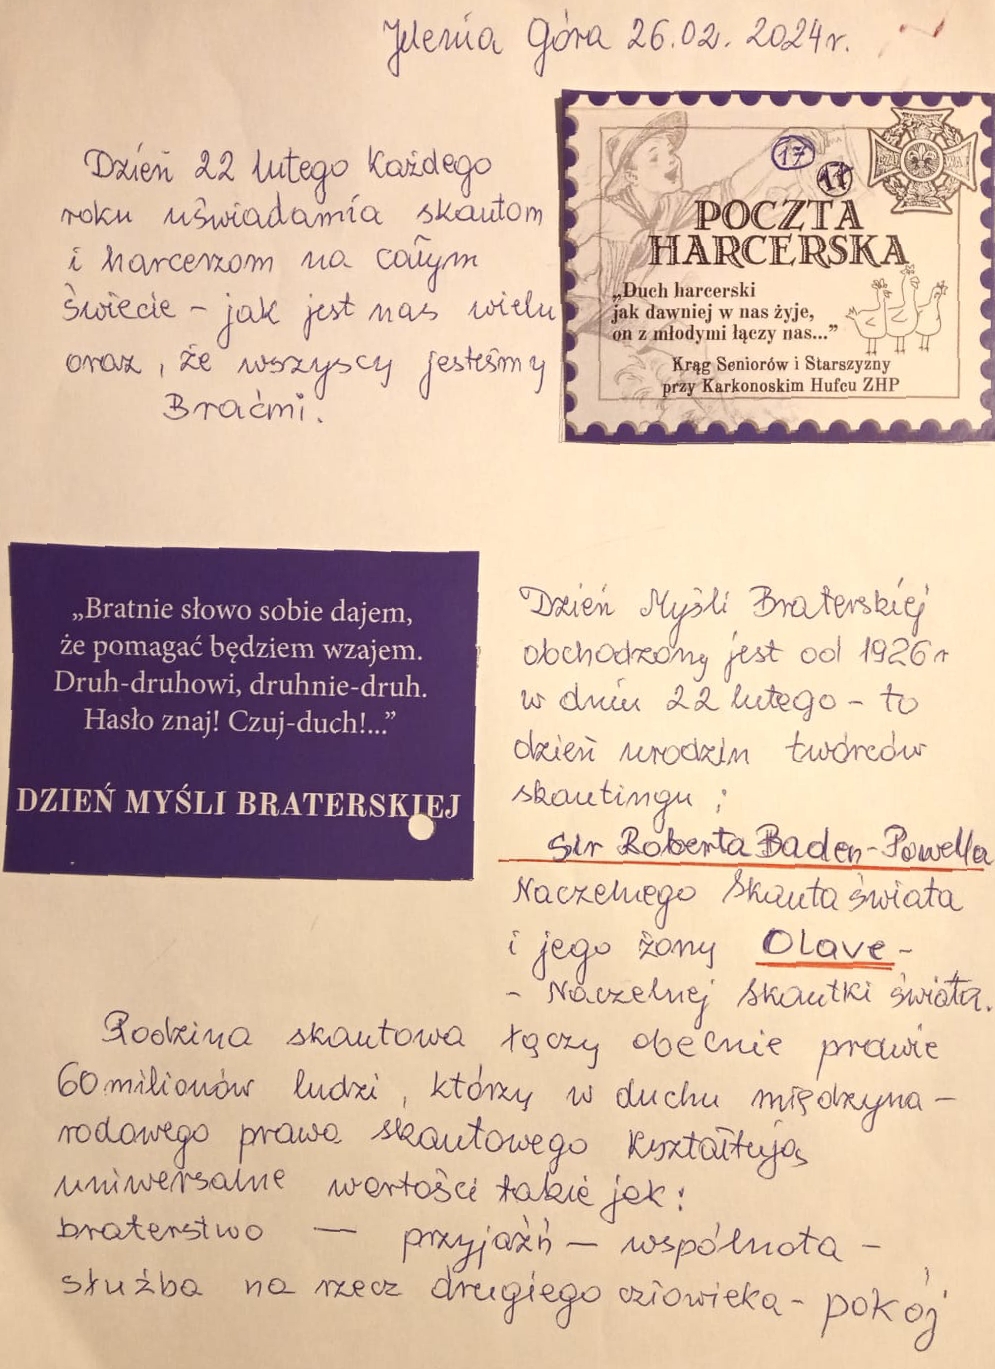 Jelenia Góra 26.02.2024r.
Dzień 22 lutego każdego
roku uświadamia skautom
i harcerzom na całym
świecie – jak jest nas wielu
oraz, że wszyscy jesteśmy
Braćmi.
17
17
POCZTA
HARCERSKA
„Duch harcerski
jak dawniej w nas żyje,
on z młodymi łączy nas...”
Krąg Seniorów i Starszyzny
przy Karkonoskim Hufcu ZHP
„Bratnie słowo sobie dajem,
że pomagać będziem wzajem.
Druh-druhowi, druhnie-druh.
Hasło znaj! Czuj-duch!...”
DZIEŃ MYŚLI BRATERSKIEJ
Dzień Myśli Braterskiej
obchodzony jest od 1926r
w dniu 22 lutego – to
dzień urodzin twórców
skautingu:
Sir Roberta Baden-Powella
Naczelnego Skauta świata
i jego żony Olave –
– Naczelnej Skautki świata.
Rodzina skautowa łączy obecnie prawie
60 milionów ludzi, którzy w duchu międzyna–
rodowego prawa skautowego kształtują
uniwersalne wartości takie jak:
braterstwo — przyjaźń – wspólnota –
służba na rzecz drugiego człowieka – pokój